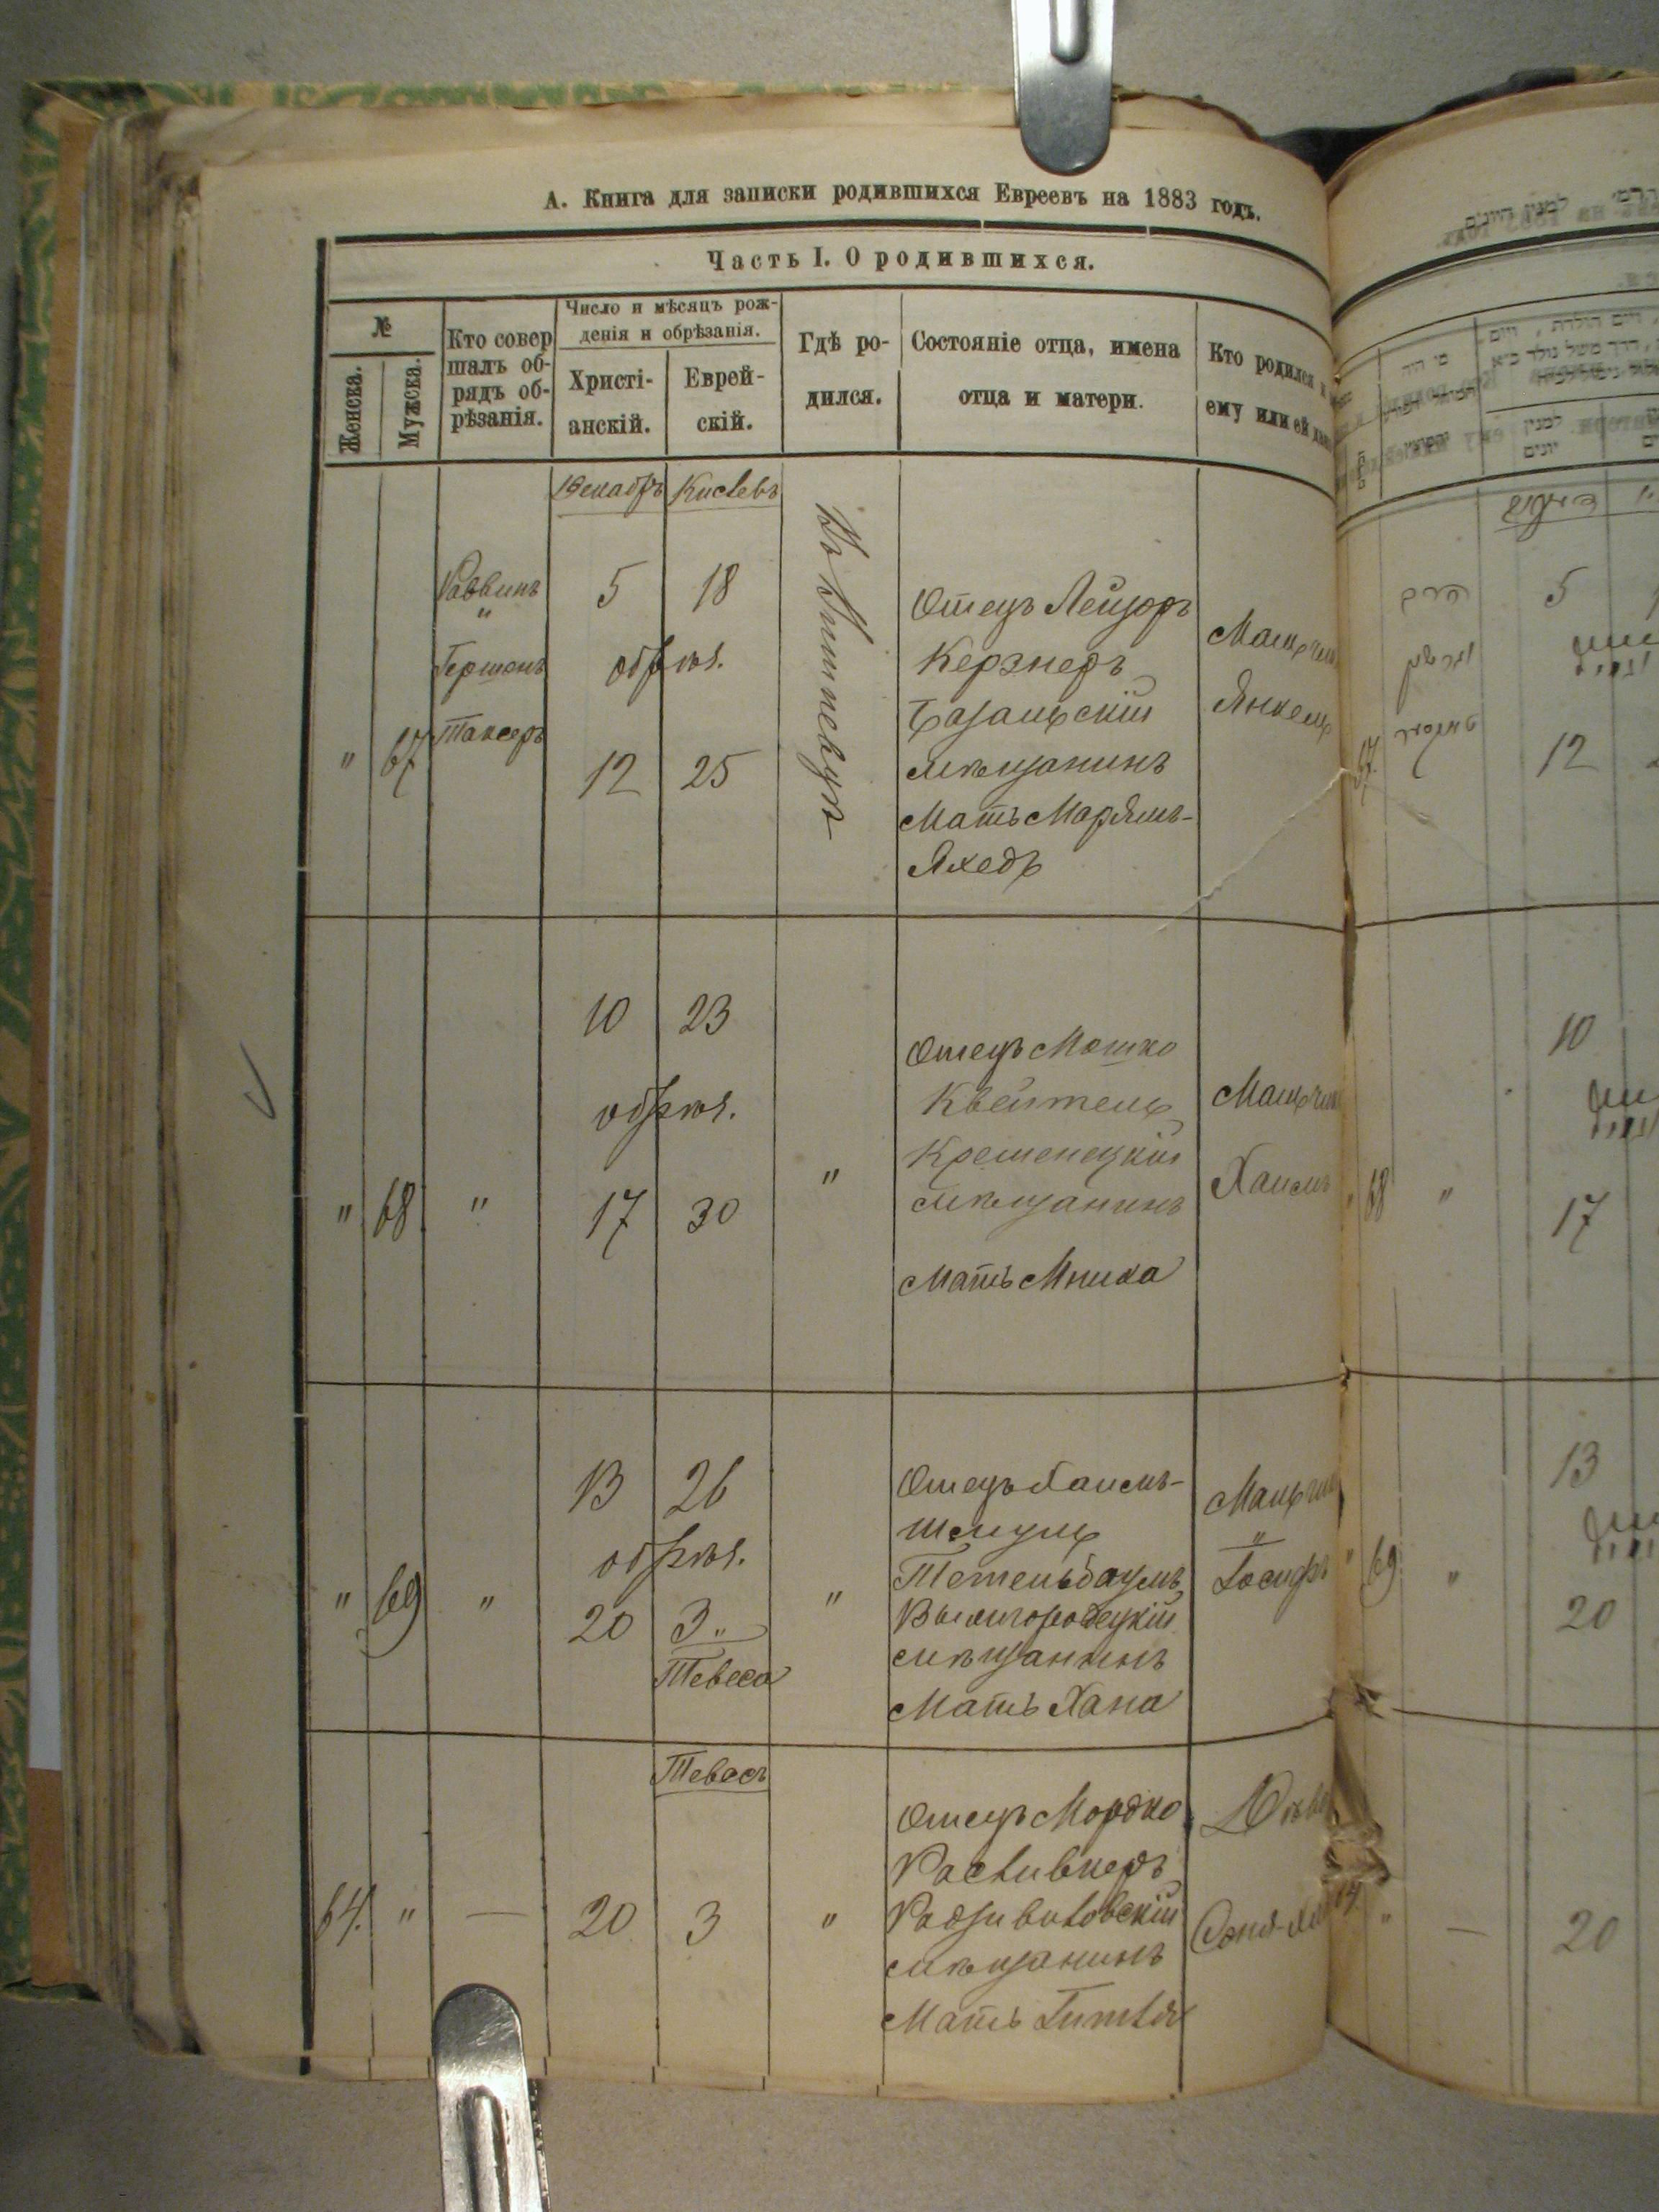 А. Книга для записки родившихся Евреевъ на 1883 годъ.
Часть I. О родившихся.
№
Женска.
Мужска.
Кто совер
шалъ об-
рядъ об-
рѣзанія.
Число и мѣсяцъ рож-
денія и обрѣзанія.
Христі-
анскій.
Еврей-
скій.
Гдѣ ро-
дился.
Состояніе отца, имена
отца и матери.
Кто родился и
ему или ей
Декабръ
Кислевъ
"
67
Раввинъ
"
Гершонъ
Таксеръ
5
18
обрѣз.
12
25
Отецъ Лейзоръ
Керзнеръ
мѣщанинъ
Мать Марьямъ-
Яхедъ
Мальчик
Янкель
"
68
"
10
23
обрѣз.
17
30
"
Отецъ Мошко
Квейтель
Кременецкій
мѣщанинъ
Мать Мниха
Мальчик
Хаимъ
"
69
"
13
26
обрѣз.
20
3"
Тевеса
"
Отецъ Хаимъ-
Шмуль
Тетельбаумъ
Вышгородецкій
мѣщанинъ
Мать Хана
Мальчик
"
Іосифъ
Тевесъ
64.
"
—
20
3
"
Отецъ Мордко
Радзивиловскій
мѣщанинъ
Мать Гитля
Соня-
למנין
יונים
5
12
67
68
"
10
17
69
"
13
20
"
—
20